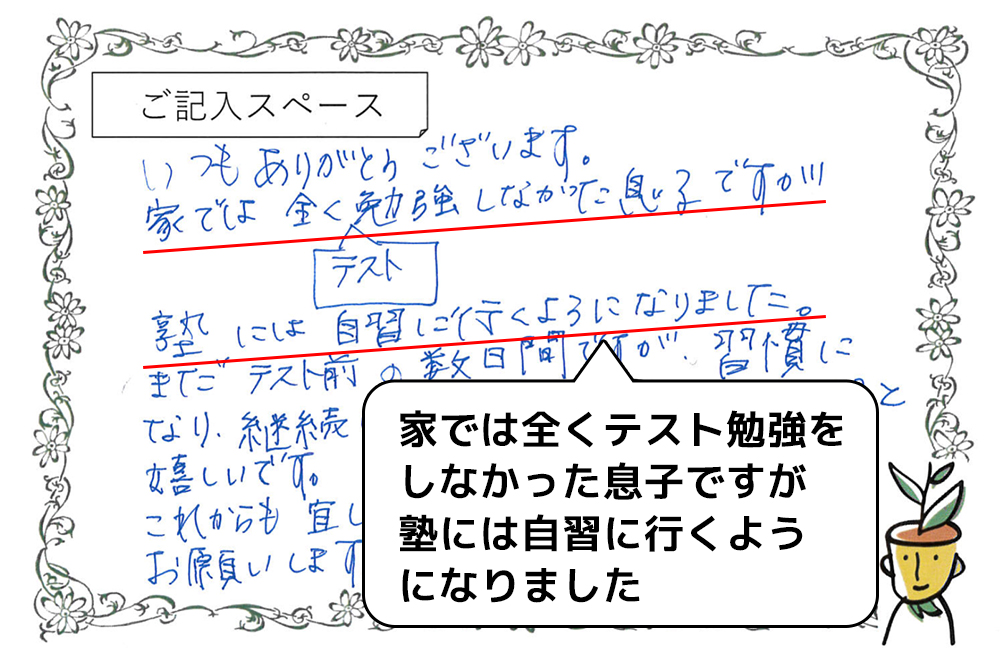 ご記入スペース
いつもありがとうございます。
家では全く勉強しなかった息子ですが
テスト
塾には自習に行くようになりました。
まだテスト前の数日間ですが、習慣に
なり、継続
と
嬉しいです。
これからも宜し
お願いします
家では全くテスト勉強を
しなかった息子ですが
塾には自習に行くよう
になりました